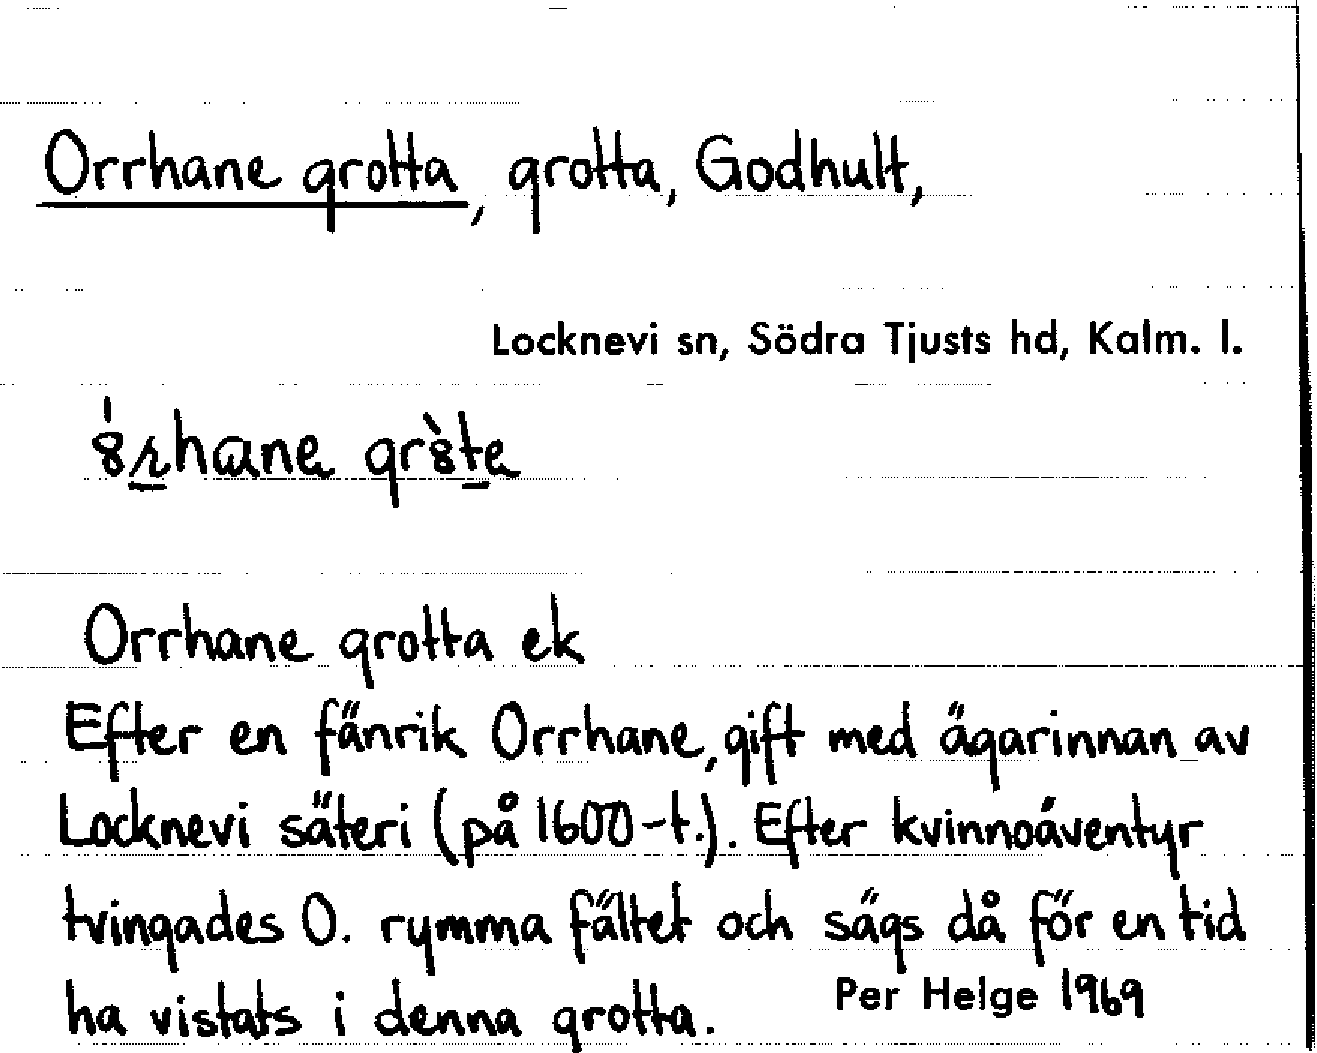 Orrhane grotta, grotta, Godhult,
Locknevi sn, Södra Tjusts hd, Kalm. l.
Orrhane grotta ek
Efter en fänrik Orrhane, gift med ägarinnan av
Locknevi säteri (på 1600-t.). Efter kvinnoäventyr
tvingades O. rymma fältet och sägs då för en tid
ha vistats i denna grotta.
Per Helge 1969